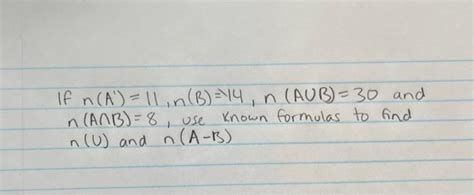 If n(A') = 11, n(B) = 14, n (A∪B) = 30 and
n(A∩B) = 8, use known formulas to find
n(U) and n(A-B)